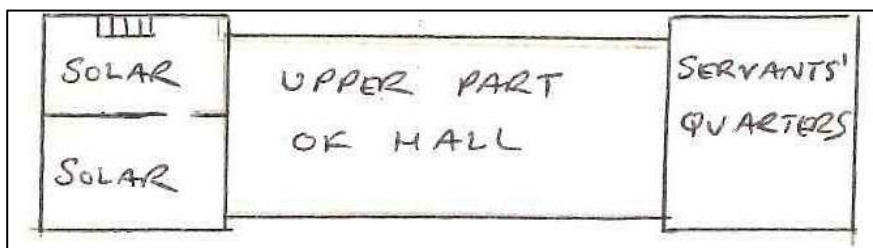 SOLAR
SOLAR
UPPER PART
OF HALL
SERVANTS'
QUARTERS